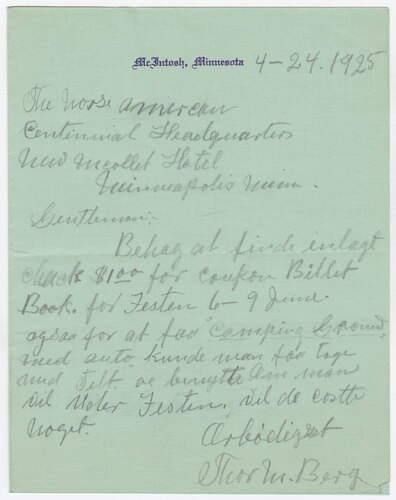 McIntosh, Minnesota 4-24.1925
The Norse American
Centennial Headquarters
New Nicollet Hotel
Minneapolis Minn.
Gentlemen:
Behag at finde enlagt
check $1.00 for coupon Billet
Book. for Festen 6-9 June.
ogsaa for at faa "Camping Ground
med auto. kunde man faa tage
med Telt. og benytte om man
vil under Festen, vil de coste
noget.
Arbödigst
Thor M. Berg